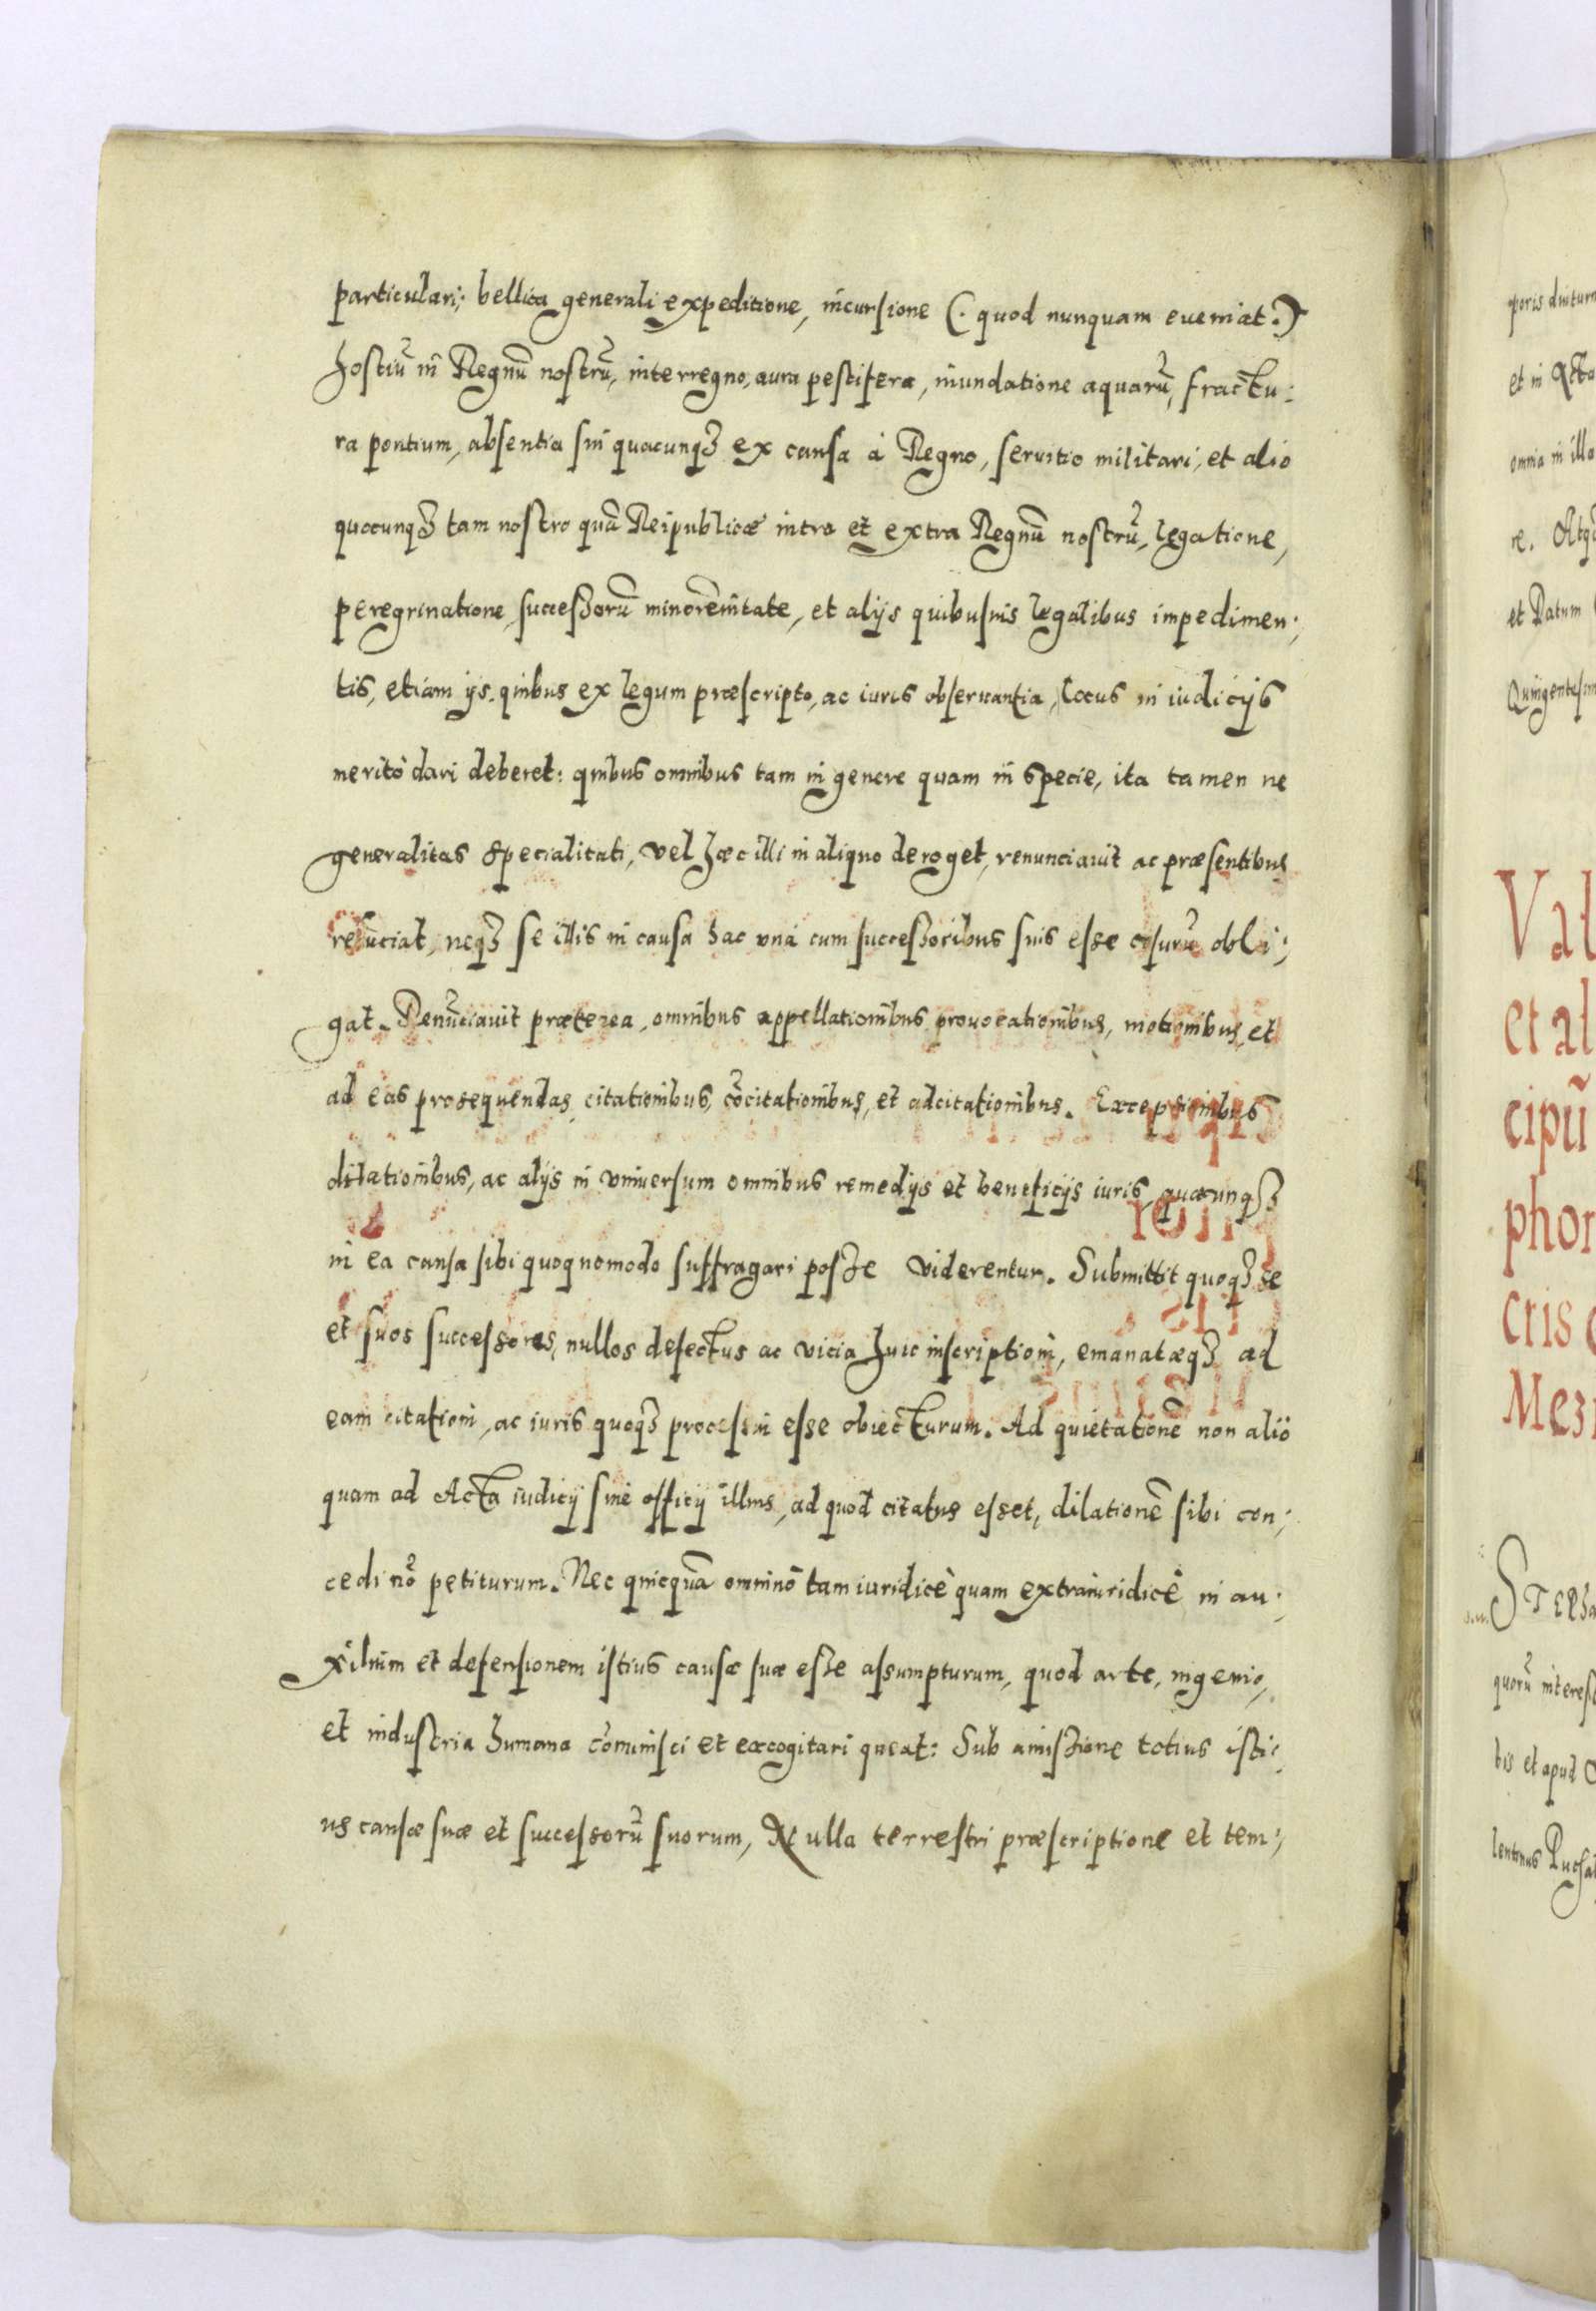 particulari, bellica generali expeditione, incursione (: quod nunquam eveniat :)
hostiũ in Regnũ nostrũ, interregno, aura pestifera, inundatione aquarũ, fractu:
ra pontium, absentia sui quacunqꝫ ex causa à Regno, servitio militari, et alio
quocunqꝫ tam nostro quã Reipublicæ intra et extra Regnũ nostrũ, legatione,
peregrinatione, successorũ minorẽnitate, et alijs quibusvis legalibus impedimen:
tis, etiam ijs, quibus ex legum præscripto, ac iuris observantia, locus in iudicijs
meritò dari deberet: quibus omnibus tam in genere quam in specie, ita tamen ne
generalitas specialitati, vel hæc illi in aliquo deroget, renunciavit ac præsentibus
renũciat, neqꝫ se illis in causa hac unà cum successoribus suis esse usurũ obli:
gat. Renũciavit præterea, omnibus appellationibus, provocationibus, motionibus, et
ad eas prosequendas, citationibus, cõcitationibus, et adcitationibus. Exceptionibus
dilationibus, ac alijs in universum omnibus remedijs et beneficijs iuris, quæcunqꝫ
in ea causa sibi quoquomodo suffragari posse viderentur. Submittit quoqꝫ se
et suos successores, nullos defectus ac vicia huic inscriptioni, emanatæqꝫ ad
eam citationi, ac iuris quoqꝫ processui esse obiecturum. Ad quietationẽ non aliò
quam ad Acta iudicij sive officij illius, ad quod citatus esset, dilationẽ sibi con:
cedi nõ petiturum. Nec quicquã omninò tam iuridicè quam extraiuridicè in au:
xilium et defensionem istius causæ suæ esse assumpturum, quod arte, ingenio,
et industria humana cõminisci et excogitari queat: Sub amissione totius isti:
us causæ suæ et successorũ suorum, Nulla terrestri præscriptione et tem:
Val
et al
cipũ
phor
cris